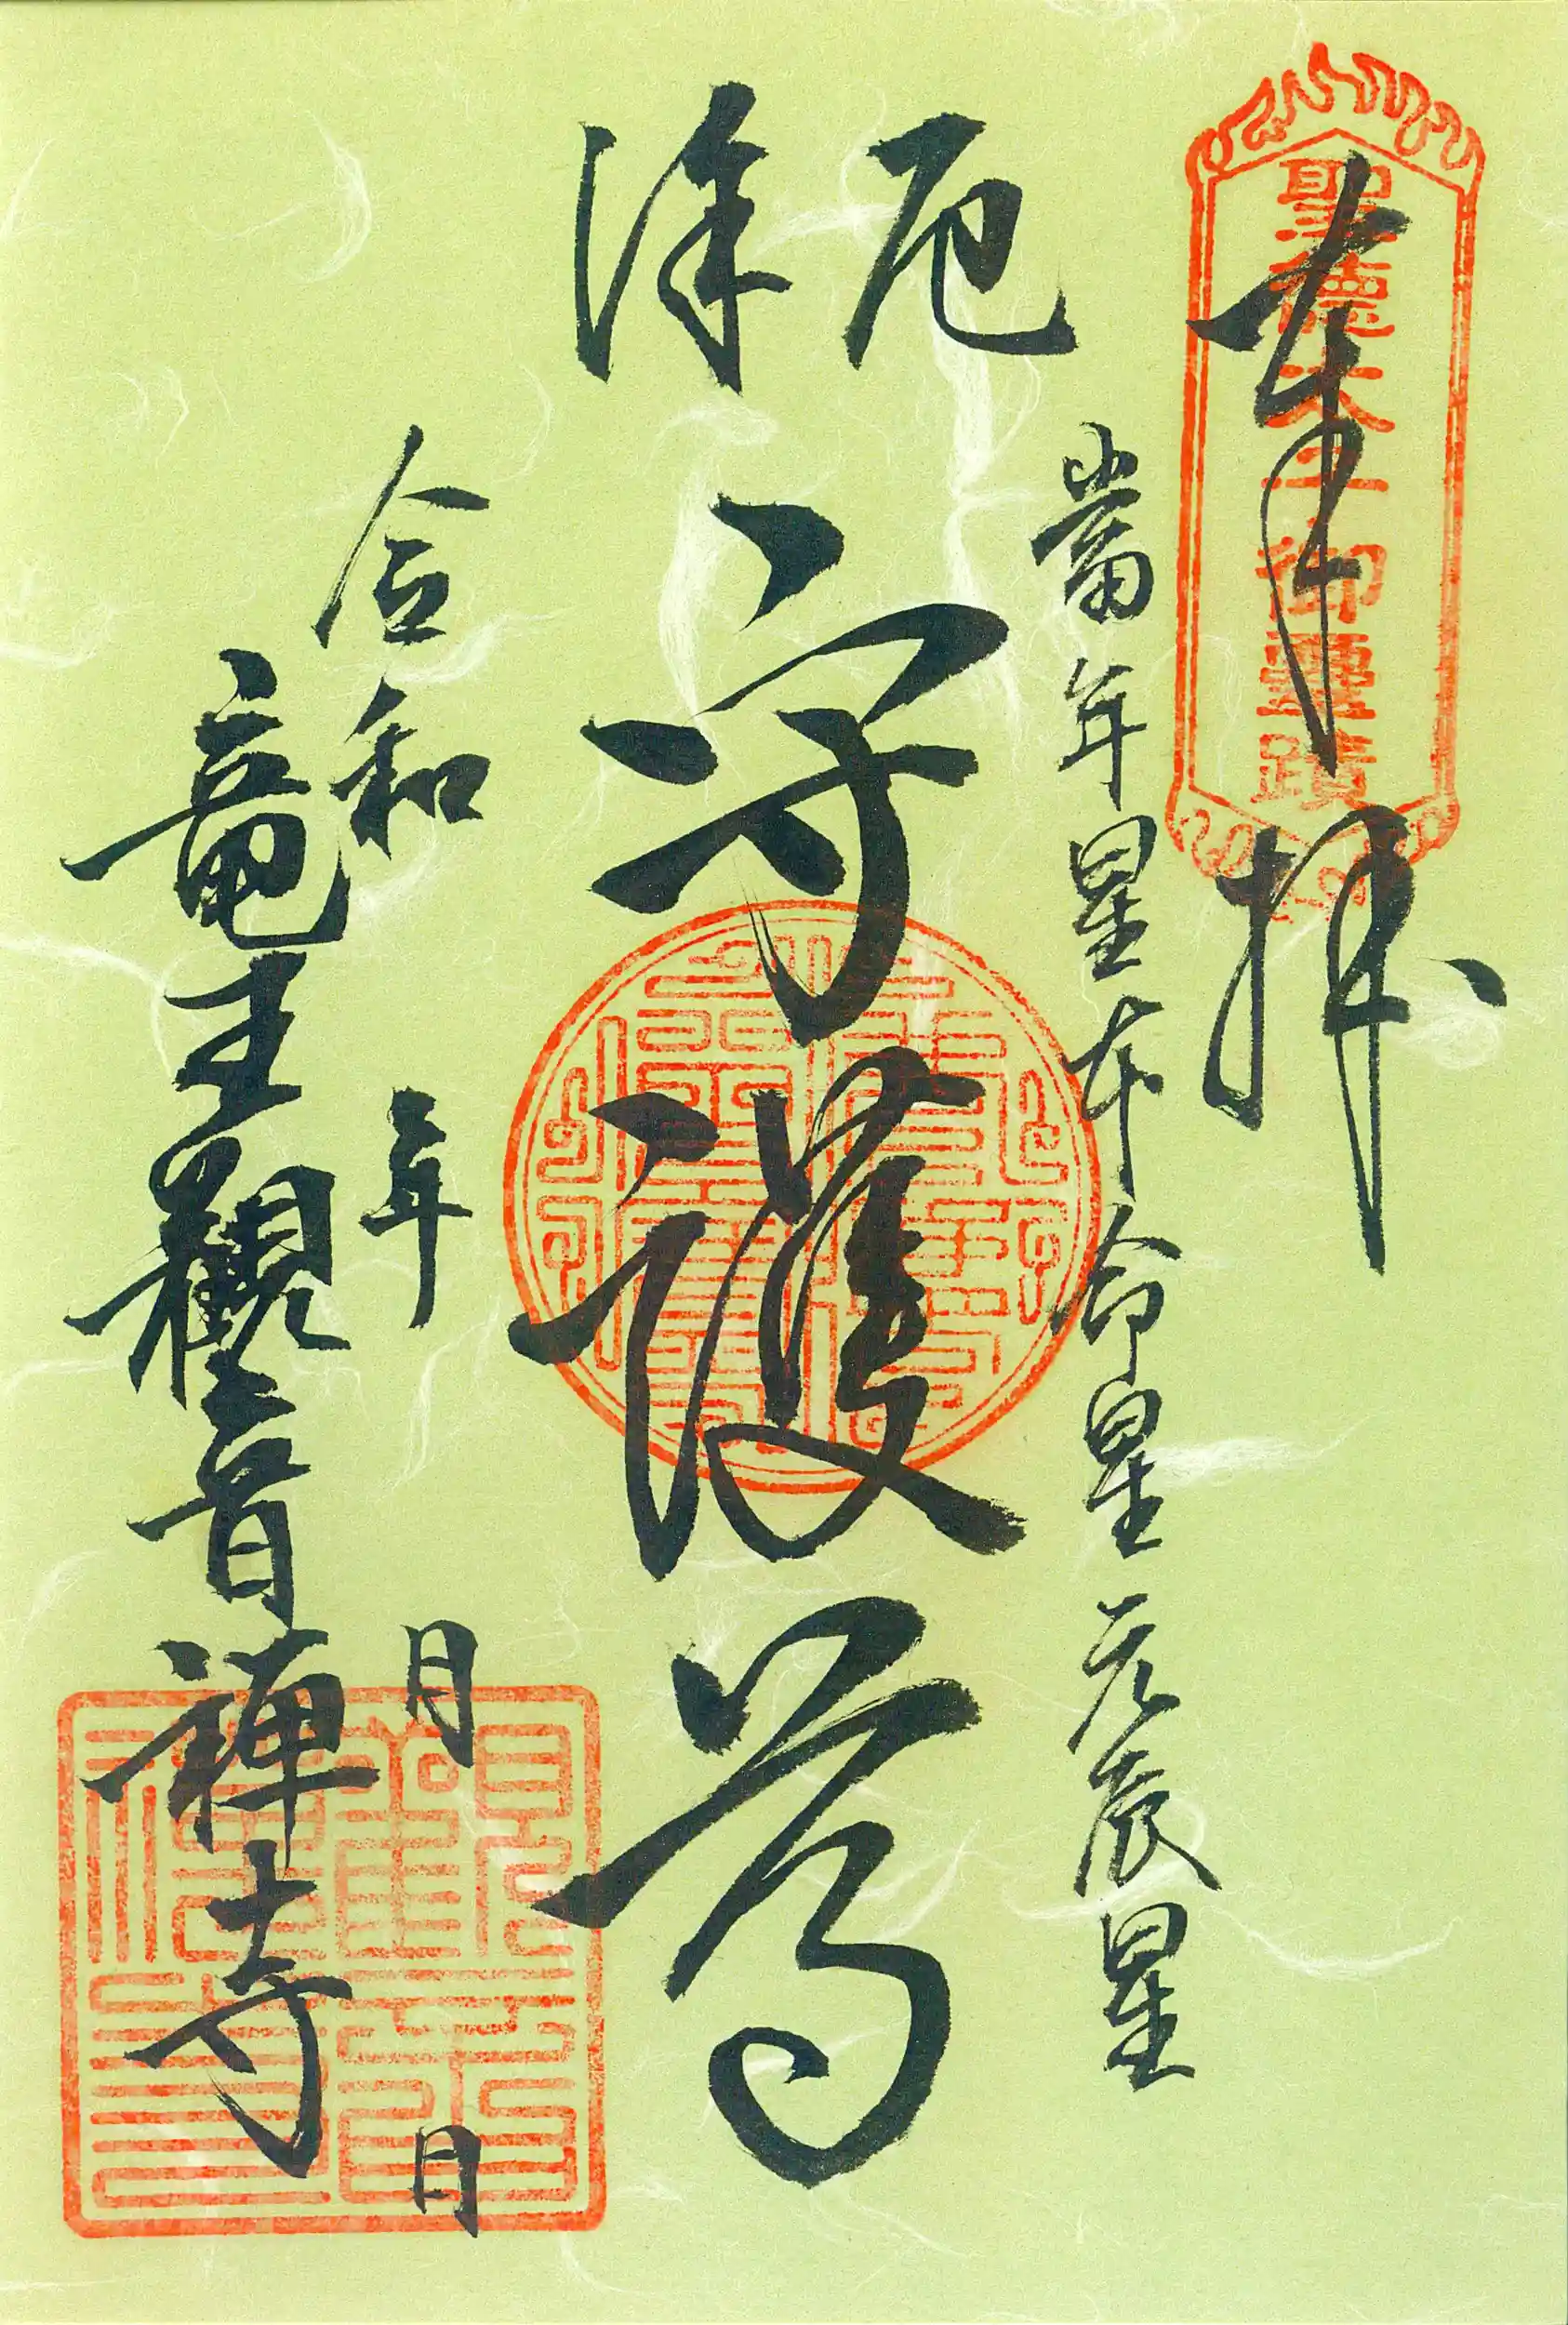 奉拝
聖徳太子御霊蹟
當年星本命星元辰星
厄除
守護尊
令和 年 月 日
竜王観音禅寺